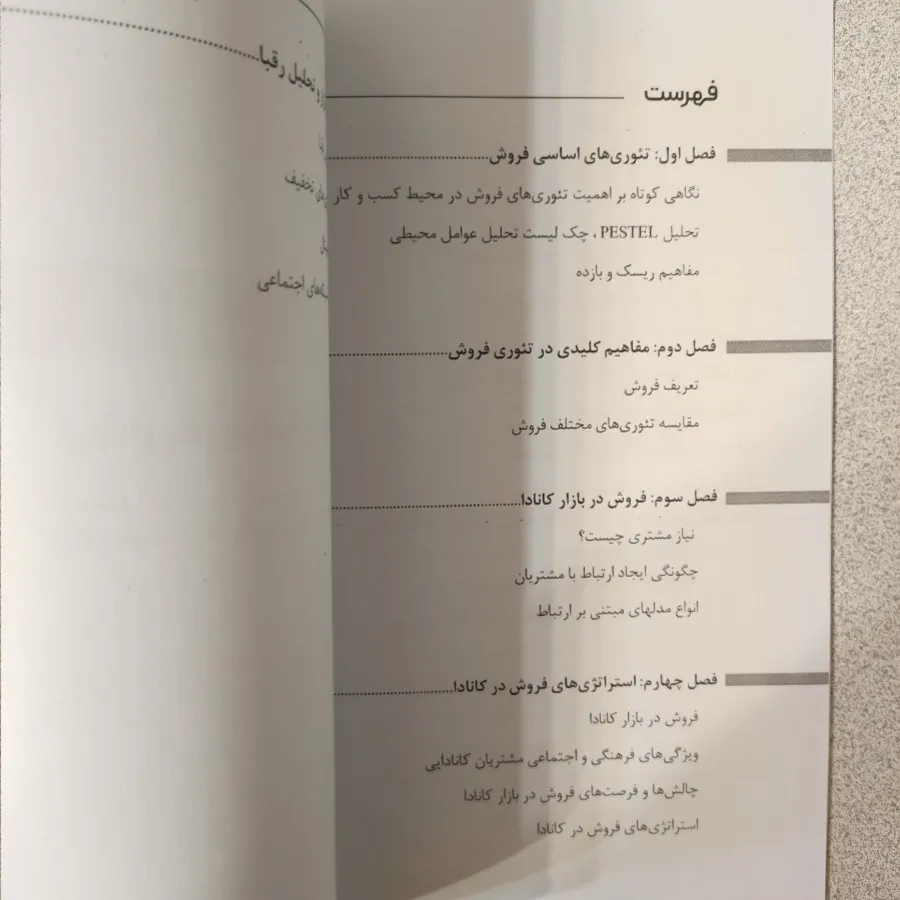 فهرست
فصل اول: تئوری‌های اساسی فروش
نگاهی کوتاه بر اهمیت تئوری‌های فروش در محیط کسب و کار
تحلیل PESTEL، چک لیست تحلیل عوامل محیطی
مفاهیم ریسک و بازده
فصل دوم: مفاهیم کلیدی در تئوری فروش
تعریف فروش
مقایسه تئوری‌های مختلف فروش
فصل سوم: فروش در بازار کانادا
نیاز مشتری چیست؟
چگونگی ایجاد ارتباط با مشتریان
انواع مدلهای مبتنی بر ارتباط
فصل چهارم: استراتژی‌های فروش در کانادا
فروش در بازار کانادا
ویژگی‌های فرهنگی و اجتماعی مشتریان کانادایی
چالش‌ها و فرصت‌های فروش در بازار کانادا
استراتژی‌های فروش در کانادا
تحلیل رقبا
تخفیف
اجتماعی